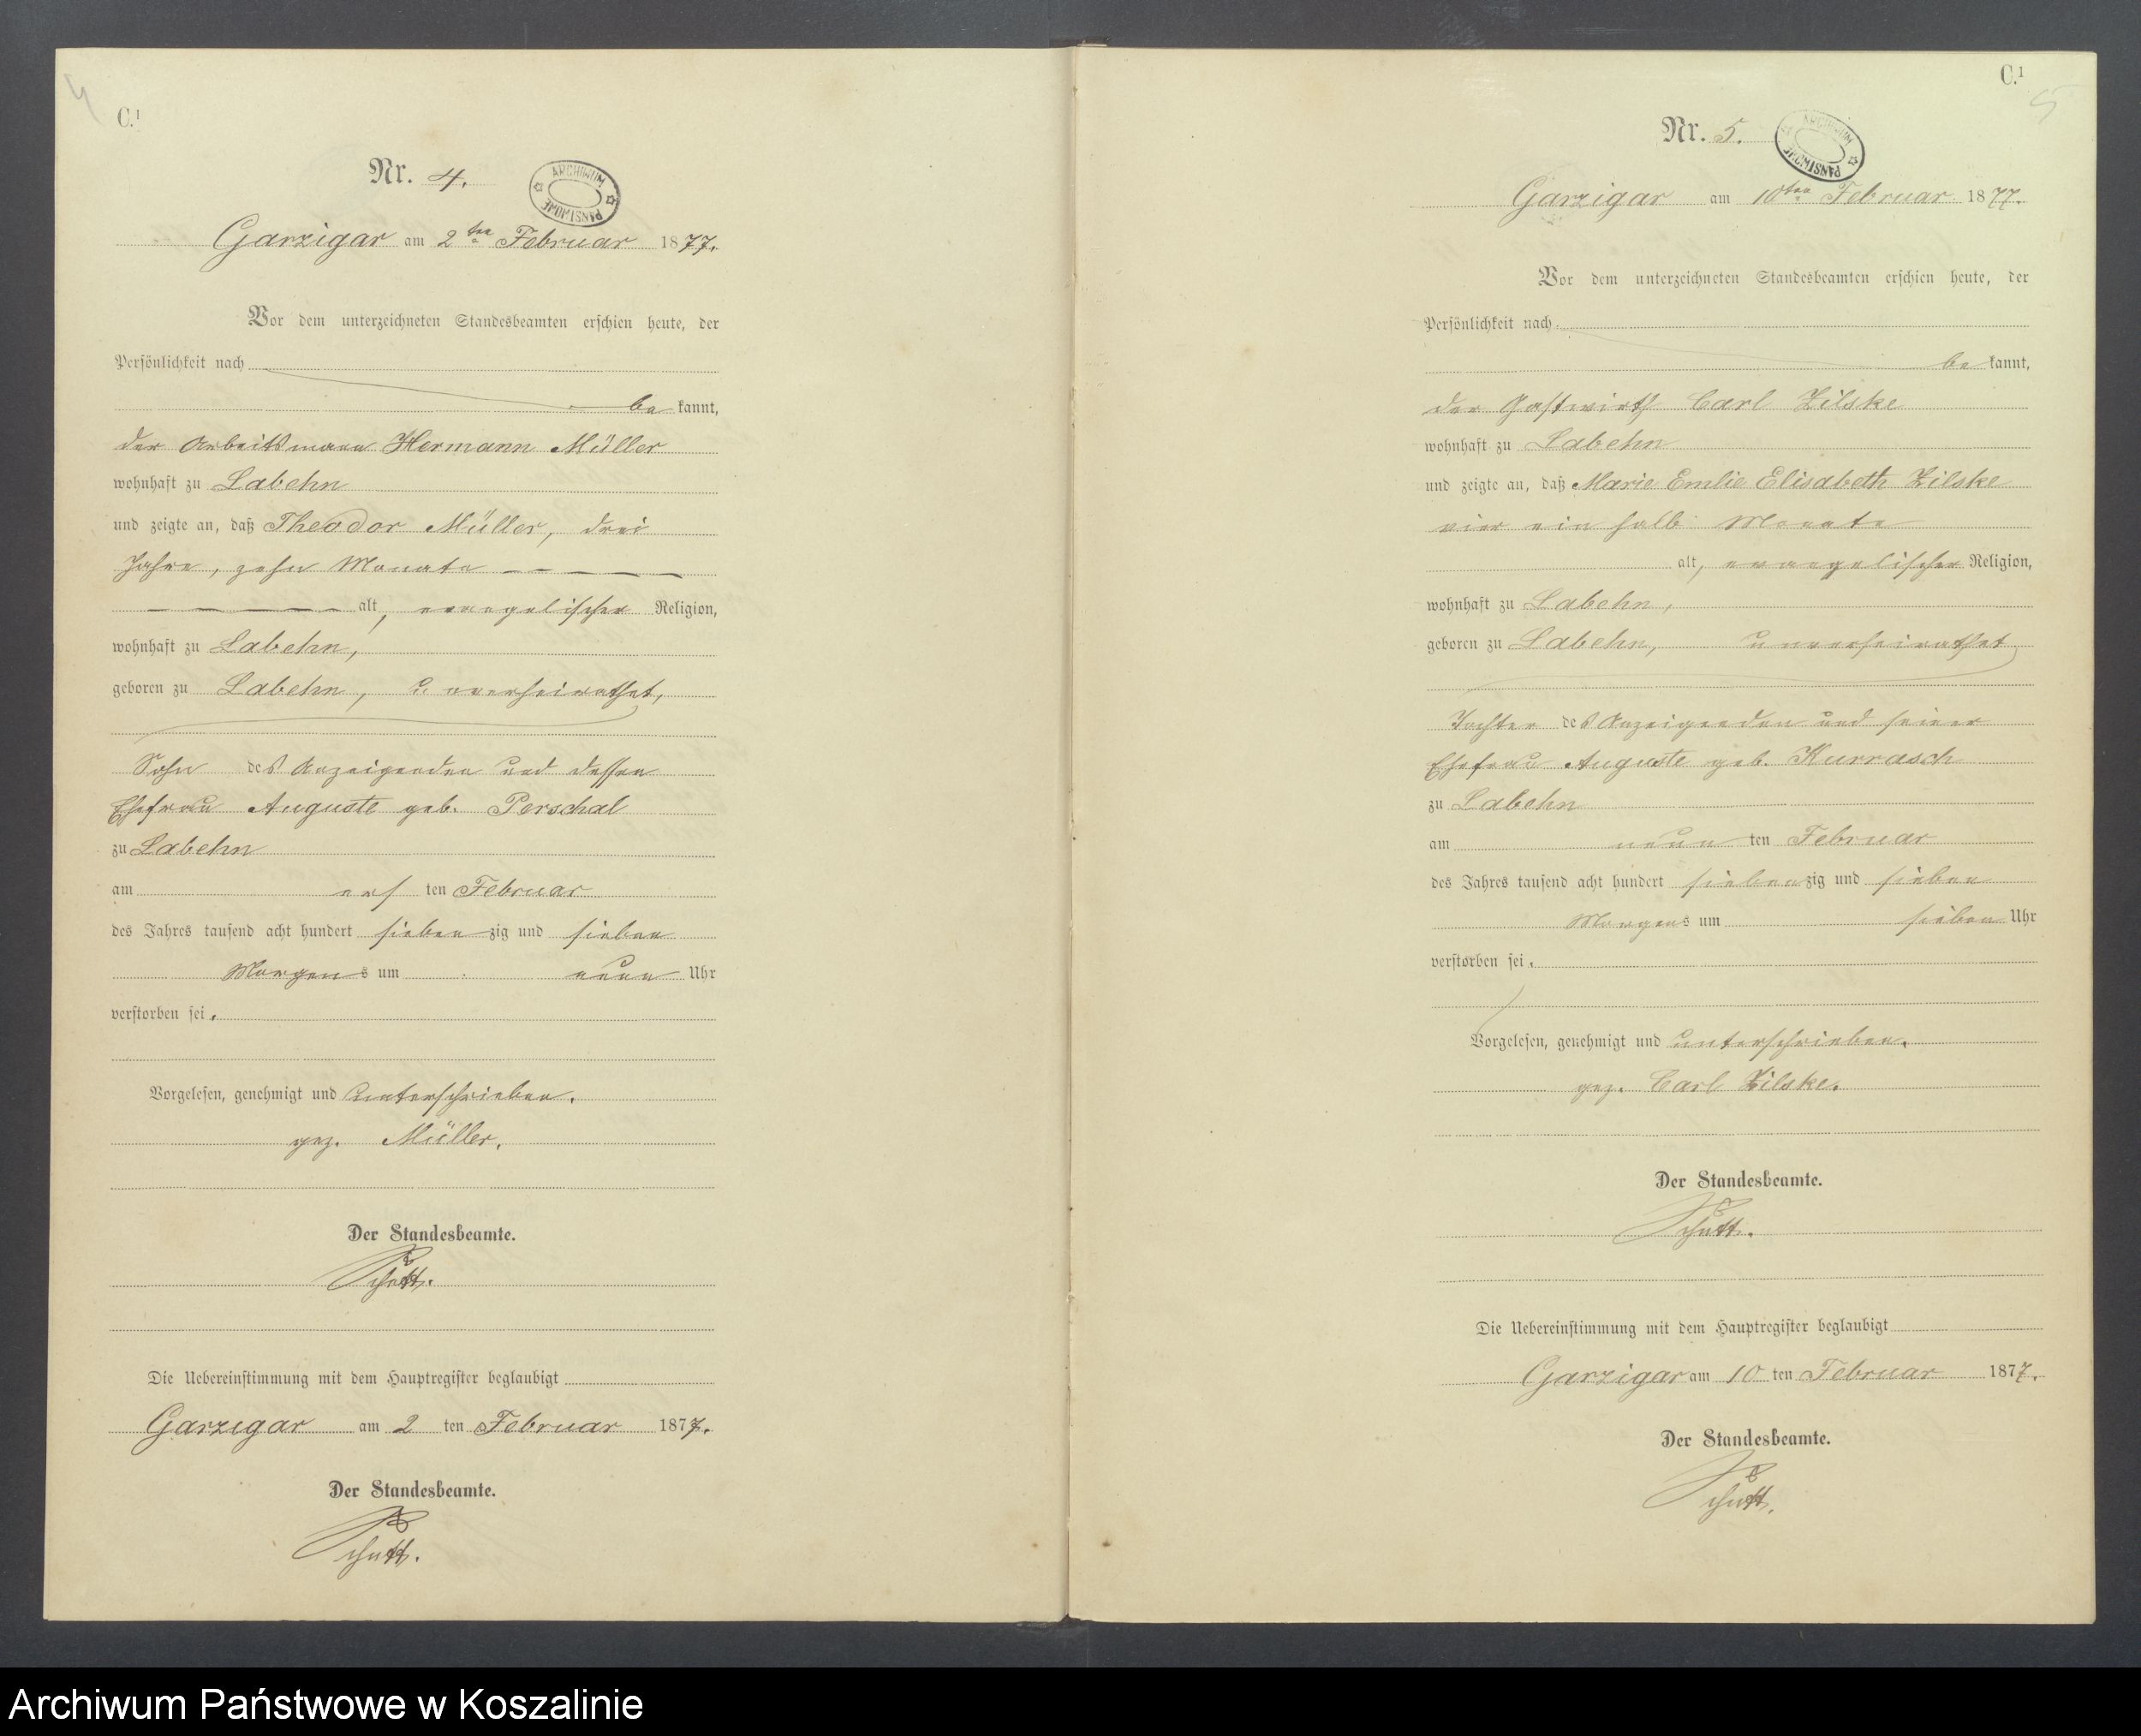 4
C.¹
Nr. 4.
ARCHIWUM PAŃSTWOWE
Garzigar am 2ten Februar 1877.
Vor dem unterzeichneten Standesbeamten erschien heute, der
Persönlichkeit nach
be kannt,
der Arbeitsmann Hermann Müller
wohnhaft zu Labehn
und zeigte an, daß Theodor Müller, drei
Jahre, zehn Monate — — — —
— — — — — alt, evangelischer Religion,
wohnhaft zu Labehn,
geboren zu Labehn, unverheirathet,
Sohn des Anzeigenden und dessen
Ehefrau Auguste geb. Perschal
zu Labehn
am ers ten Februar
des Jahres tausend acht hundert sieben zig und sieben
Morgens um neun Uhr
verstorben sei.
Vorgelesen, genehmigt und unterschrieben.
gez. Müller.
Der Standesbeamte.
Schütt.
Die Uebereinstimmung mit dem Hauptregister beglaubigt
Garzigar am 2 ten Februar 1877.
Der Standesbeamte.
Schütt.
C.¹
5
Nr. 5.
ARCHIWUM PAŃSTWOWE
Garzigar am 10ten Februar 1877.
Vor dem unterzeichneten Standesbeamten erschien heute, der
Persönlichkeit nach
be kannt,
der Gastwirth Carl Zilske
wohnhaft zu Labehn
und zeigte an, daß Marie Emlie Elisabeth Zilske
vier ein halb Monate
alt, evangelischer Religion,
wohnhaft zu Labehn,
geboren zu Labehn, unverheirathet
Tochter des Anzeigenden und seiner
Ehefrau Auguste geb. Kurrasch
zu Labehn
am neun ten Februar
des Jahres tausend acht hundert siebenzig und sieben
Morgens um sieben Uhr
verstorben sei.
Vorgelesen, genehmigt und unterschrieben.
gez. Carl Zilske.
Der Standesbeamte.
Schütt.
Die Uebereinstimmung mit dem Hauptregister beglaubigt
Garzigar am 10 ten Februar 1877.
Der Standesbeamte.
Schütt.
Archiwum Państwowe w Koszalinie